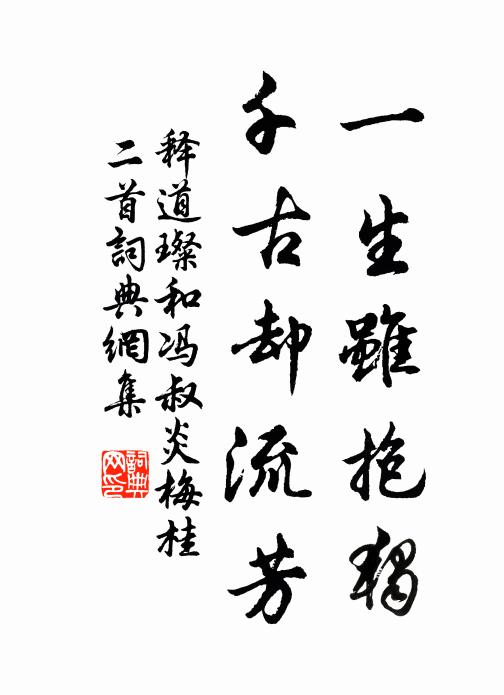 一生雖抱獨
千古却流芳
释道璨和冯叔炎梅桂
二首詞典網集
詞典
网印